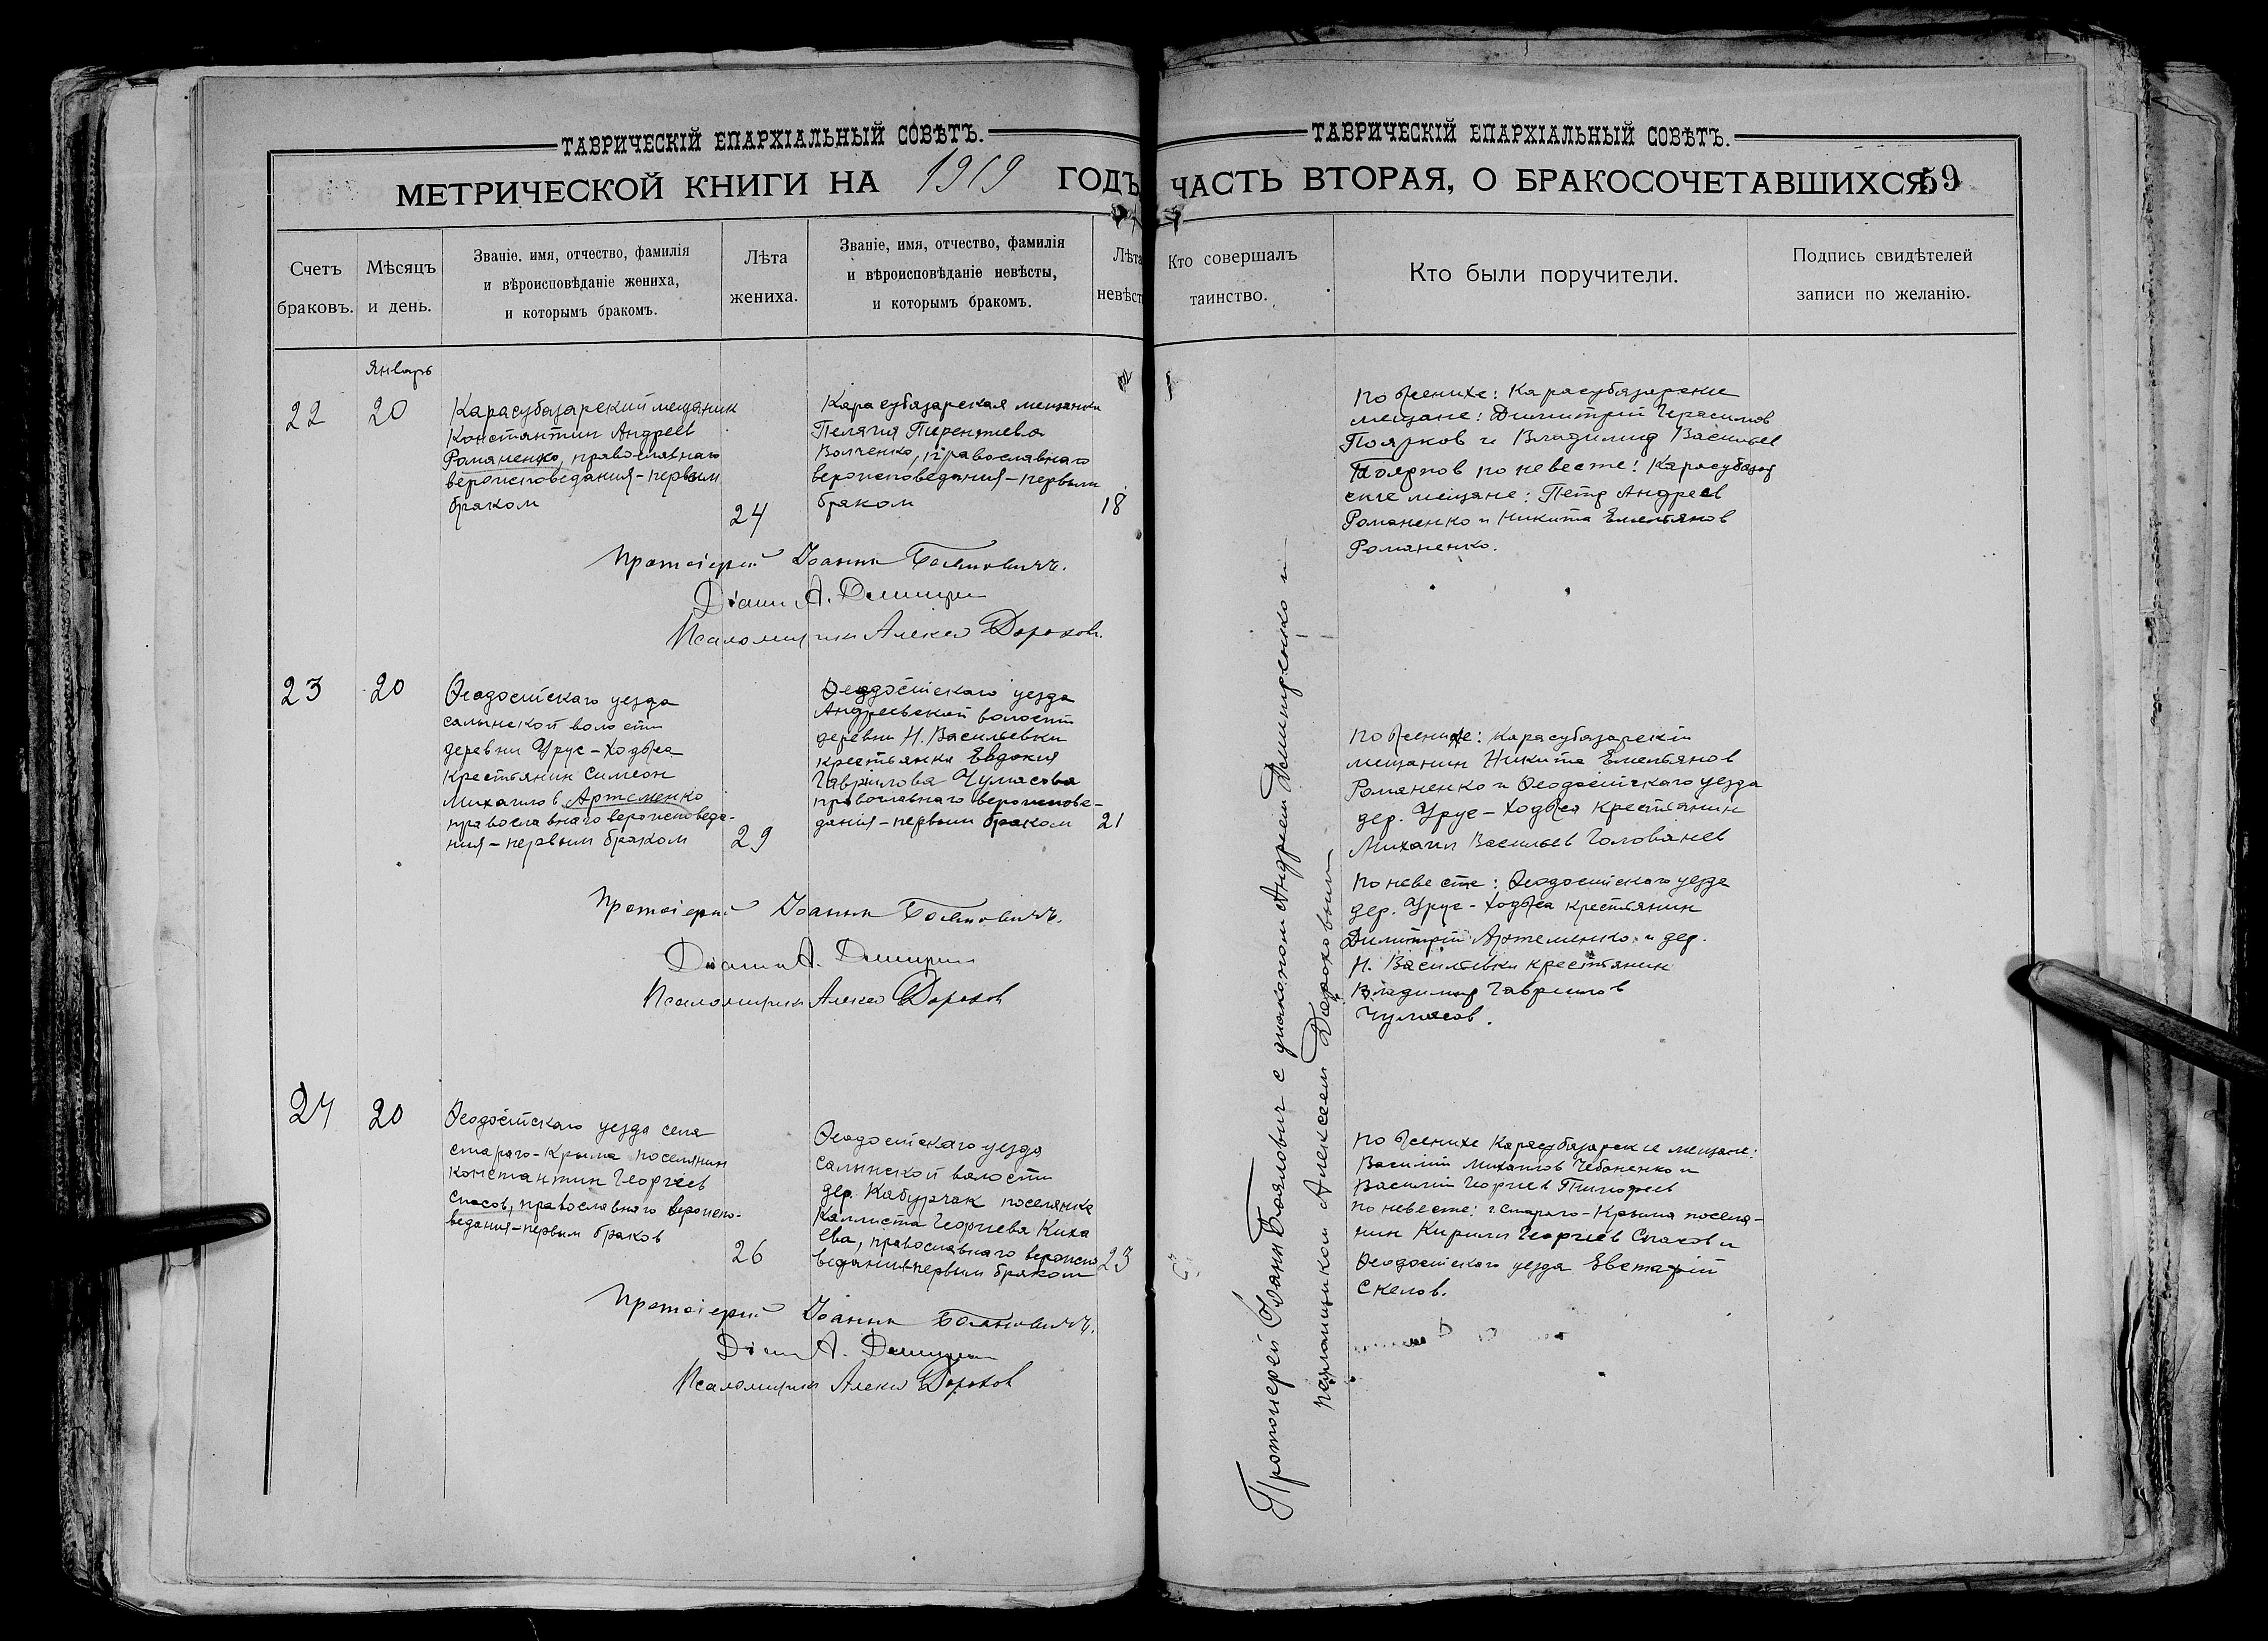 ТАВРИЧЕСКІЙ ЕПАРХІАЛЬНЫЙ СОВѢТЪ.
МЕТРИЧЕСКОЙ КНИГИ НА 1919 ГОДЪ
Счетъ браковъ.
Мѣсяцъ и день.
Званіе, имя, отчество, фамилія
и вѣроисповѣданіе жениха,
и которымъ бракомъ.
Лѣта
жениха.
Званіе, имя, отчество, фамилія
и вѣроисповѣданіе невѣсты,
и которымъ бракомъ.
Лѣта
невѣст
Январь
22
20
Карасубазарский мещанин
Константин Андреев
Романенко, православнаго
вероисповедания – первым
браком
24
Карасубазарская мещанка
Пелагия
Волченко, православнаго
вероисповедания – первым
браком
18
Протоіерей Іоаннъ
А.
Псаломщик Алексей Дорохов.
23
20
Феодосийскаго уезда
салынской волости
деревни Урус-Ходжа
крестьянин Симеон
Михаилов Артеменко
православнаго вероисповеда-
ния – первым браком
29
Феодосийскаго уезда
Андреевской волости
деревни Н. Васильевки
крестьянка Евдокия
Гавриилова Чумасова
православнаго вероиспове-
дания – первым браком
21
Протоіерей Іоаннъ
А.
Псаломщик Алексей Дорохов
24
20
Феодосийскаго уезда села
стараго-Крыма поселянин
Константин Георгиев
Спасов, православнаго вероиспо-
ведания – первым браков
26
Феодосийскаго уезда
салынской волости
дер. Кабурчак поселянка
Каллиста Георгиева Киха
ева, православнаго вероиспо
ведания первым браком
23
Протоіерей Іоаннъ
А.
Псаломщик Алексей Дорохов
ТАВРИЧЕСКІЙ ЕПАРХІАЛЬНЫЙ СОВѢТЪ.
ЧАСТЬ ВТОРАЯ, О БРАКОСОЧЕТАВШИХСЯ. 59
Кто совершалъ
таинство.
Кто были поручители.
Подпись свидѣтелей
записи по желанію.
Протоиерей Іоанн Боянович с диаконом Андреем и
псаломщиком Алексеем Дороховым
по женихе: Карасубазарские
мещане: Димитрий Герасимов
Поярков и Владимир Васильев
Поярков по невесте: Карасубазар
ские мещане: Петр Андреев
Романенко и Никита Емельянов
Романенко.
по женихе: карасубазарскій
мещанин Никита Емельянов
Романенко и Феодосийскаго уезда
дер. Урус-Ходжа крестьянин
Михаил Васильев Голованев
по невесте: Феодосийскаго уезда
дер. Урус-Ходжа крестьянин
Димитрій Артеменко и дер.
Н. Васильевки крестьянин
Владимир Гавриилов
Чумасов.
по женихе Карасубазарские мещане:
Василий Михаилов Чебоненко и
Василий Георгиев Тимофеев
по невесте: г. Стараго-Крыма поселя-
нин Кирилл Георгиев Спасов и
Феодосийскаго уезда Евстафій
Скелов.